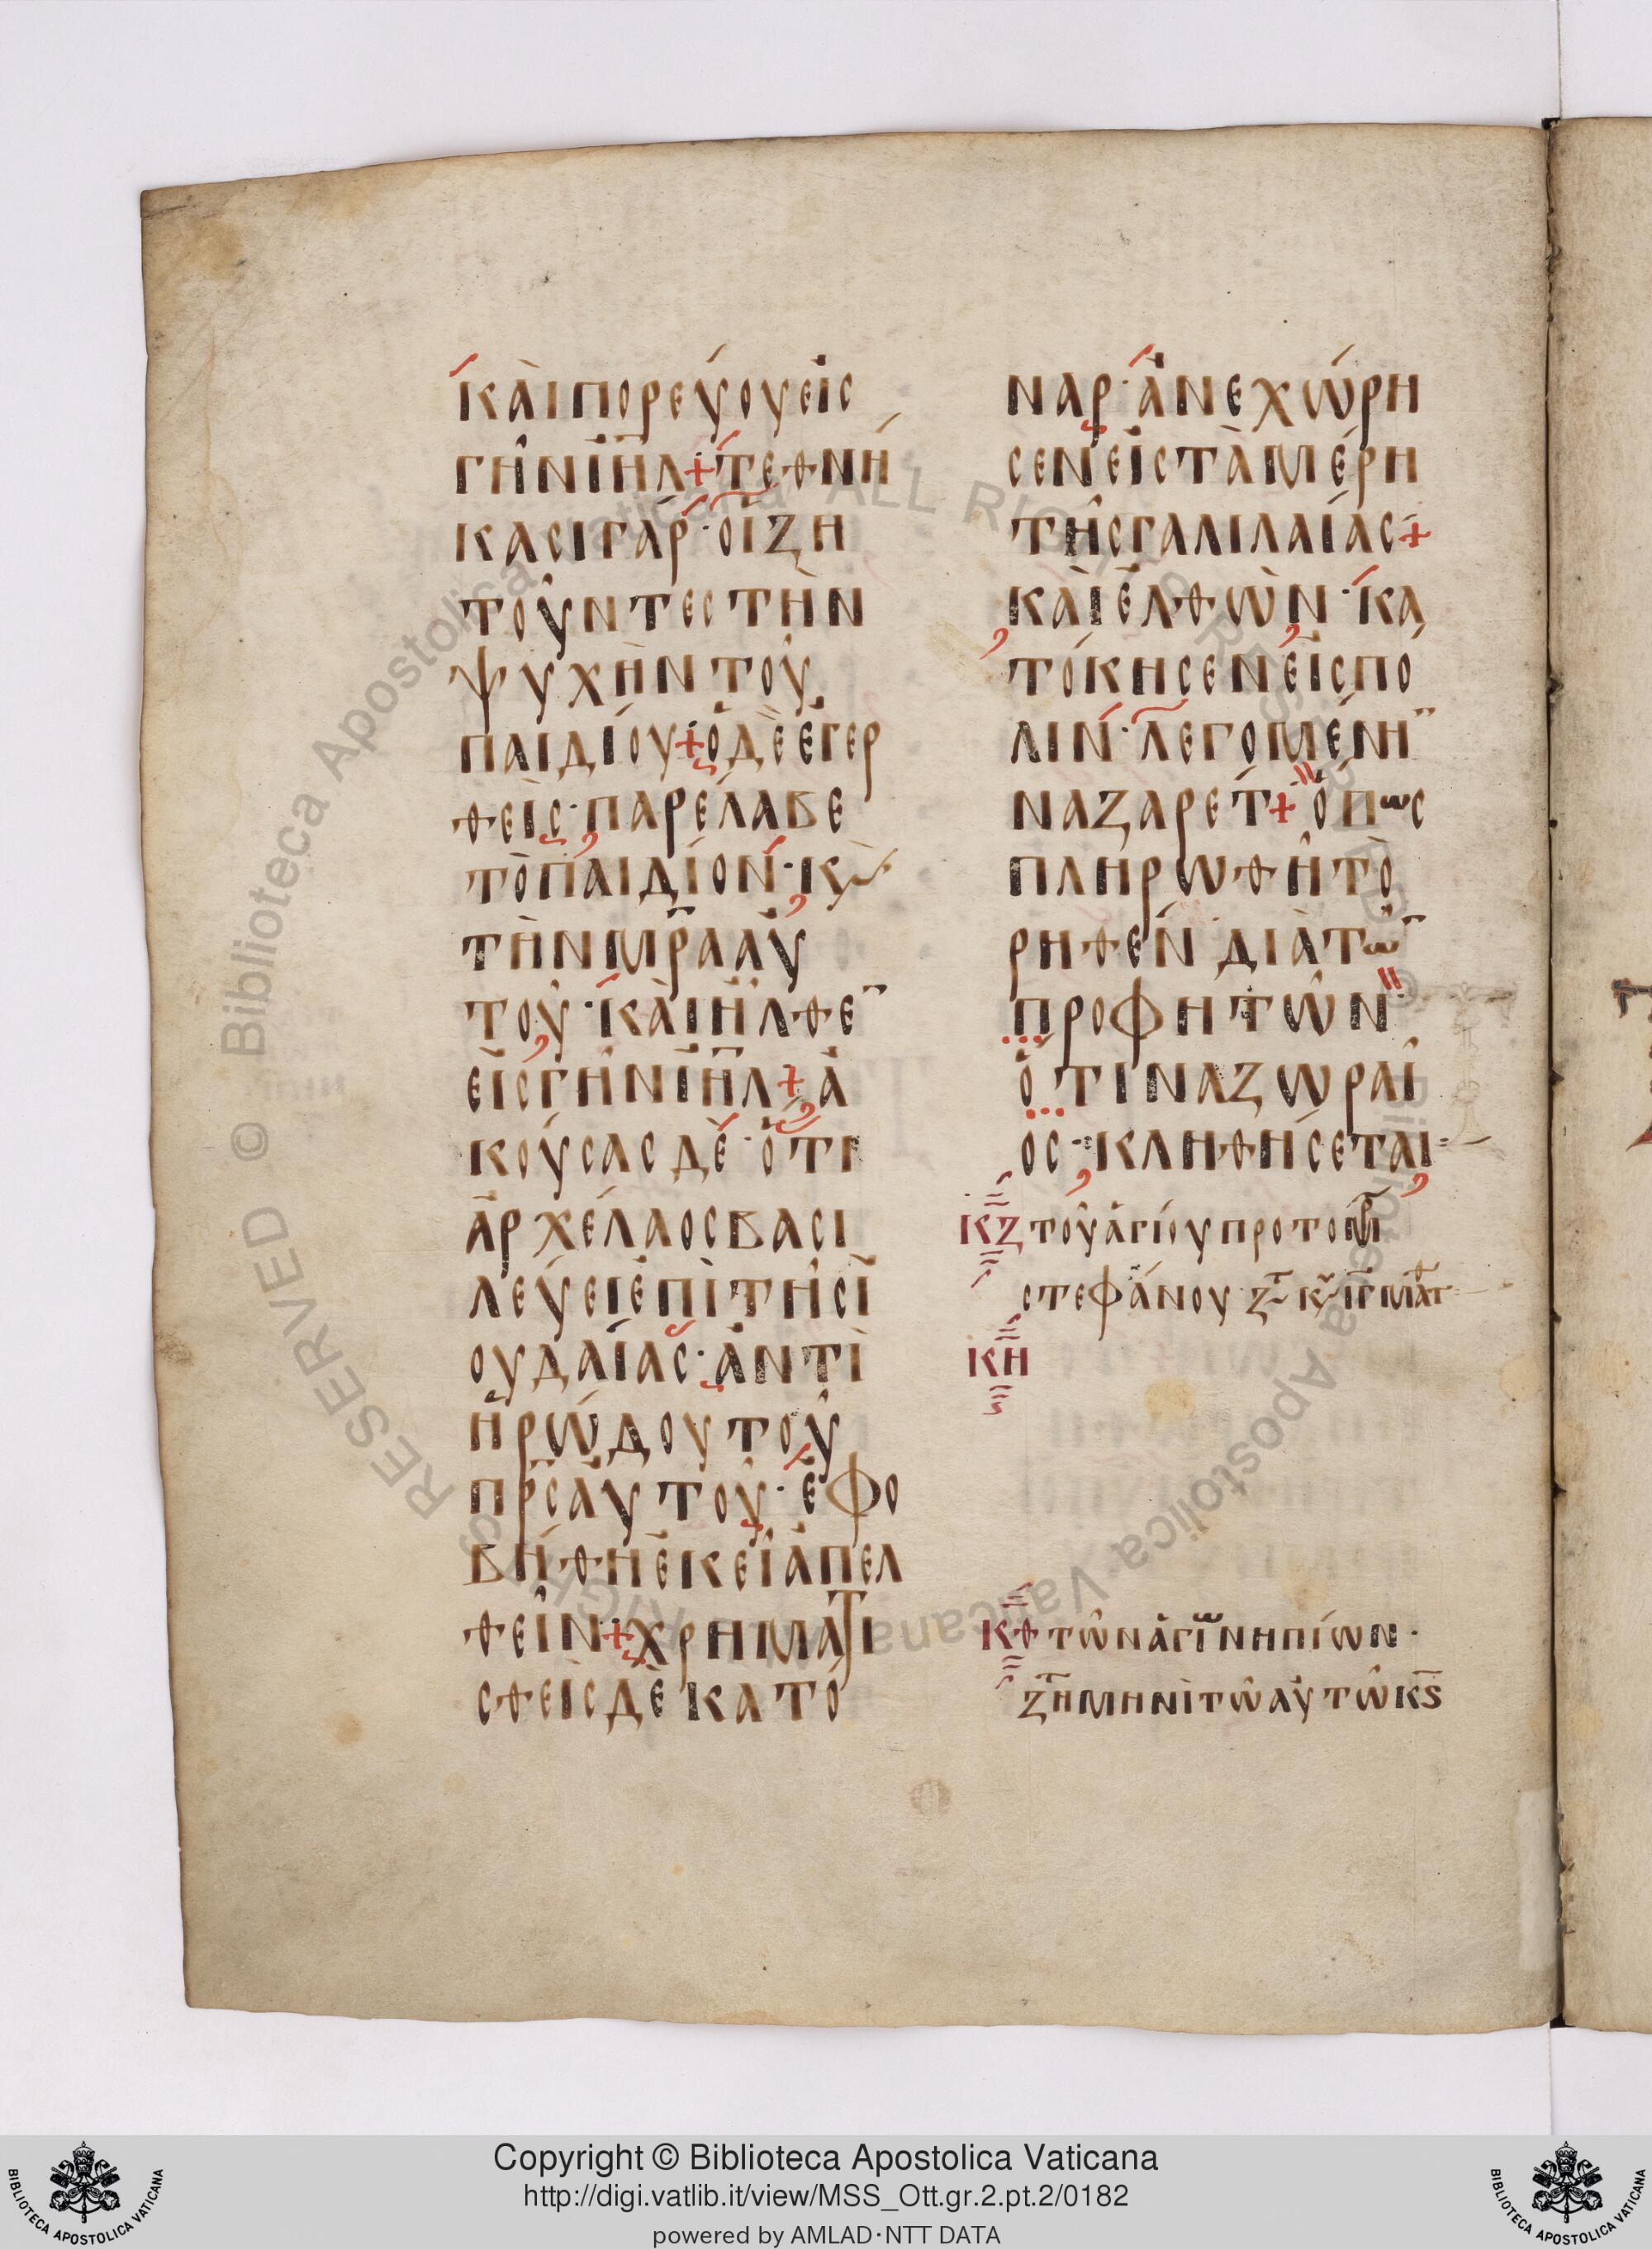 ΚΑῚ ΠΟΡΕΎΟΥ ΕἸΣ
ΓΗ͂Ν ἸΗ̅Λ + ΤΕΘΝΉ
ΚΑΣΙ ΓᾺΡ · ΟἹ ΖΗ
ΤΟΥ͂ΝΤΕΣ ΤῊΝ
ΨΥΧῊΝ ΤΟΥ͂
ΠΑΙΔΊΟΥ + Ὁ ΔῈ ἘΓΕΡ
ΘΕῚΣ · ΠΑΡΈΛΑΒΕ
ΤῸ ΠΑΙΔΊΟΝ · Κ(ΑῚ)
ΤῊΝ Μ̅Ρ̅Α ΑΥ̓
ΤΟΥ͂ · ΚΑῚ ἮΛΘΕ¯
ΕἸΣ ΓΗ͂Ν ἸΗ̅Λ + Ἀ
ΚΟΎΣΑΣ ΔΈ · ὍΤΙ
ἈΡΧΈΛΑΟΣ ΒΑΣΙ
ΛΕΎΕΙ ἘΠῚ ΤΗ͂Σ Ἰ
ΟΥΔΑΊΑΣ · ἈΝΤῚ
ἩΡΏΔΟΥ ΤΟΥ͂
Π̅Ρ̅Σ ΑΥ̓ΤΟΥ͂ · ἘΦΟ
ΒΉΘΗ ἘΚΕΙ͂ ἈΠΕΛ
ΘΕΙ͂Ν + ΧΡΗΜΑΤΙ
ΣΘΕῚΣ ΔῈ ΚΑΤ Ό
ΝΑΡ · ἈΝΕΧΏΡΗ
ΣΕΝ ΕἸΣ ΤᾺ ΜΈΡΗ
ΤΗ͂Σ ΓΑΛΙΛΑΊΑΣ +
ΚΑῚ ἘΛΘῺΝ · ΚΑ
ΤΌΚΗΣΕΝ ΕἸΣ ΠΌ
ΛΙΝ · ΛΕΓΟΜΈΝΗ¯
ΝΑΖΑΡΈΤ + ὍΠΩΣ
ΠΛΗΡΩΘΗ͂ ΤῸ
ΡΗΘΈΝ ΔΙᾺ ΤΩ͂¯
ΠΡΟΦΗΤΩ͂Ν ·
ὍΤΙ ΝΑΖΩΡΑΙ͂
ΟΣ · ΚΛΗΘΉΣΕΤΑΙ
ΚΖ ΤΟΥ͂ ἉΓΊΟΥ ΠΡΟΤΟΜ̅
ΣΤΕΦΆΝΟΥ Ζ̅ Κ̅Υ ΙΓ̅ ΜΑΤΘ
ΚΗ
ΚΘ ΤΩ͂Ν ἉΓΊΩΝ ΝΗΠΊΩΝ ·
Ζ̅Η ΜΗΝῚ ΤΩ͂ ΑΥ̓ΤΩ͂ ΚϚ
Copyright © Biblioteca Apostolica Vaticana
http://digi.vatlib.it/view/MSS_Ott.gr.2.pt.2/0182
powered by AMLAD·NTT DATA
BIBLIOTECA APOSTOLICA VATICANA
BIBLIOTECA APOSTOLICA VATICANA
© Biblioteca Apostolica Vaticana ALL RIGHTS RESERVED
© Biblioteca Apostolica Vaticana ALL RIGHTS RESERVED